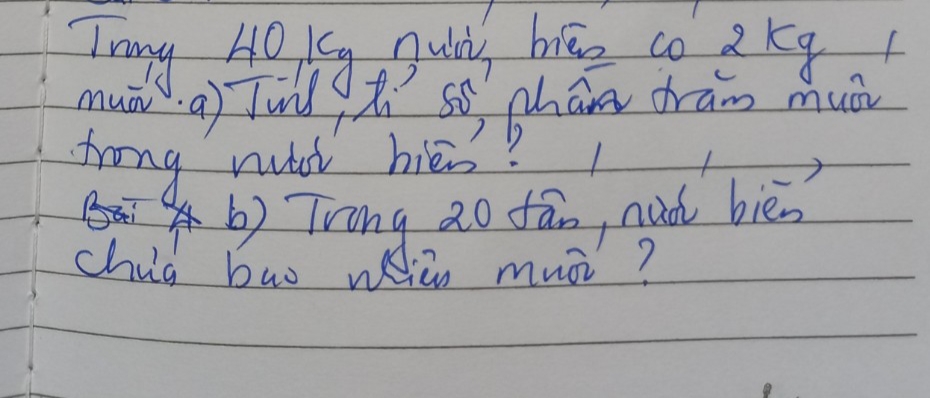 Trong 40 kg nước biển có 2 kg
muối. a) Tính tỉ số phần trăm muối
trong nước biển?
Bài 4 b) Trong 20 tấn nước biển
chứa bao nhiêu muối?